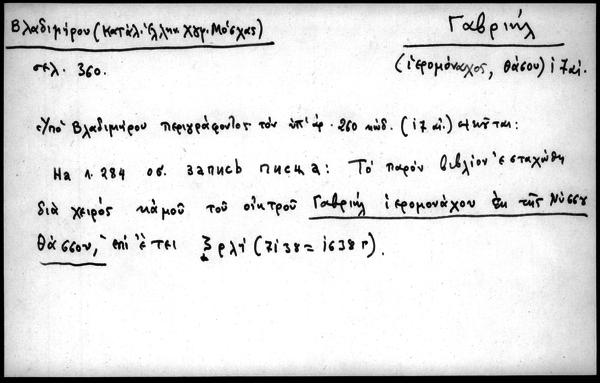 Βλαδιμήρου (Κατάλ. Ἑλλην. Χγρ. Μόσχας)
Γαβριήλ
σελ. 360.
(ἱερομόναχος, Θάσου) ιζ αἰ.
Ὑπὸ Βλαδιμήρου περιγράφοντος τὸν ὑπ' ἀρ. 260 κώδ. (ιζ αἰ.)
На л. 284 об. запись писца: Τὸ παρὸν βιβλίον ἐσταχώθη
διὰ χειρὸς κἀμοῦ τοῦ οἰκτροῦ Γαβριὴλ ἱερομονάχου ἐκ τῆς Νύσσου
Θάσσου, ἐπὶ ἔτει ζρλή (7138 = 1638 г).